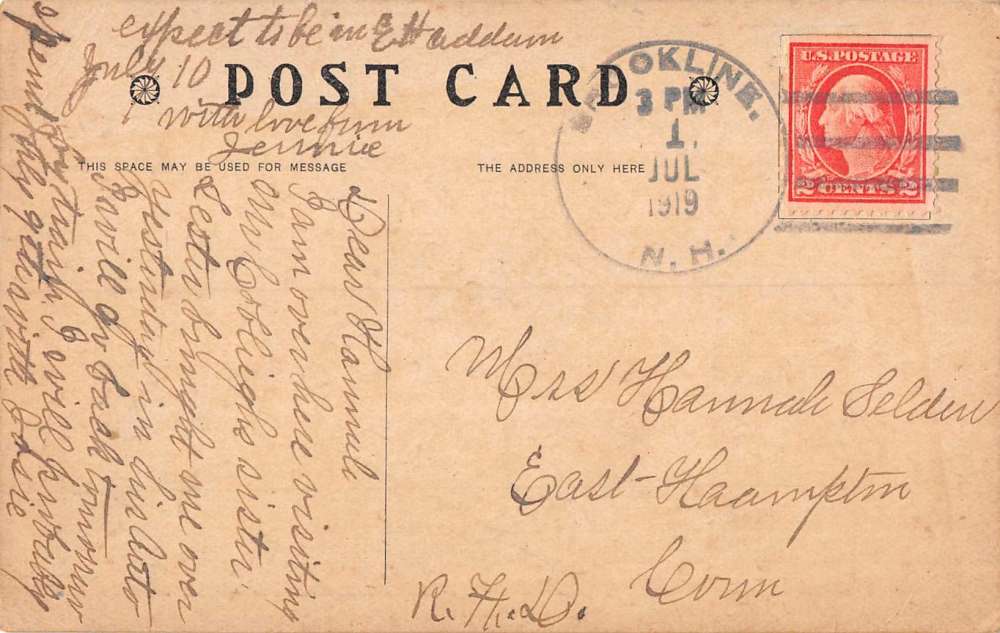 POST CARD
THIS SPACE MAY BE USED FOR MESSAGE
THE ADDRESS ONLY HERE
BROOKLINE.
3 PM
1
JUL
1919
N.H.
U.S. POSTAGE
2 CENTS 2
Dear Hannah
I am over here visiting
Mr Cobleighs sister
Lester brought me over
yesterday in his auto
I will go back tomorrow
for train I will probably
spend July 4th with Josie
expect to be in E Haddam
July 10
with love from
Jennie
Mrs Hannah Selden
East-Haampton
Conn
R.F.D.